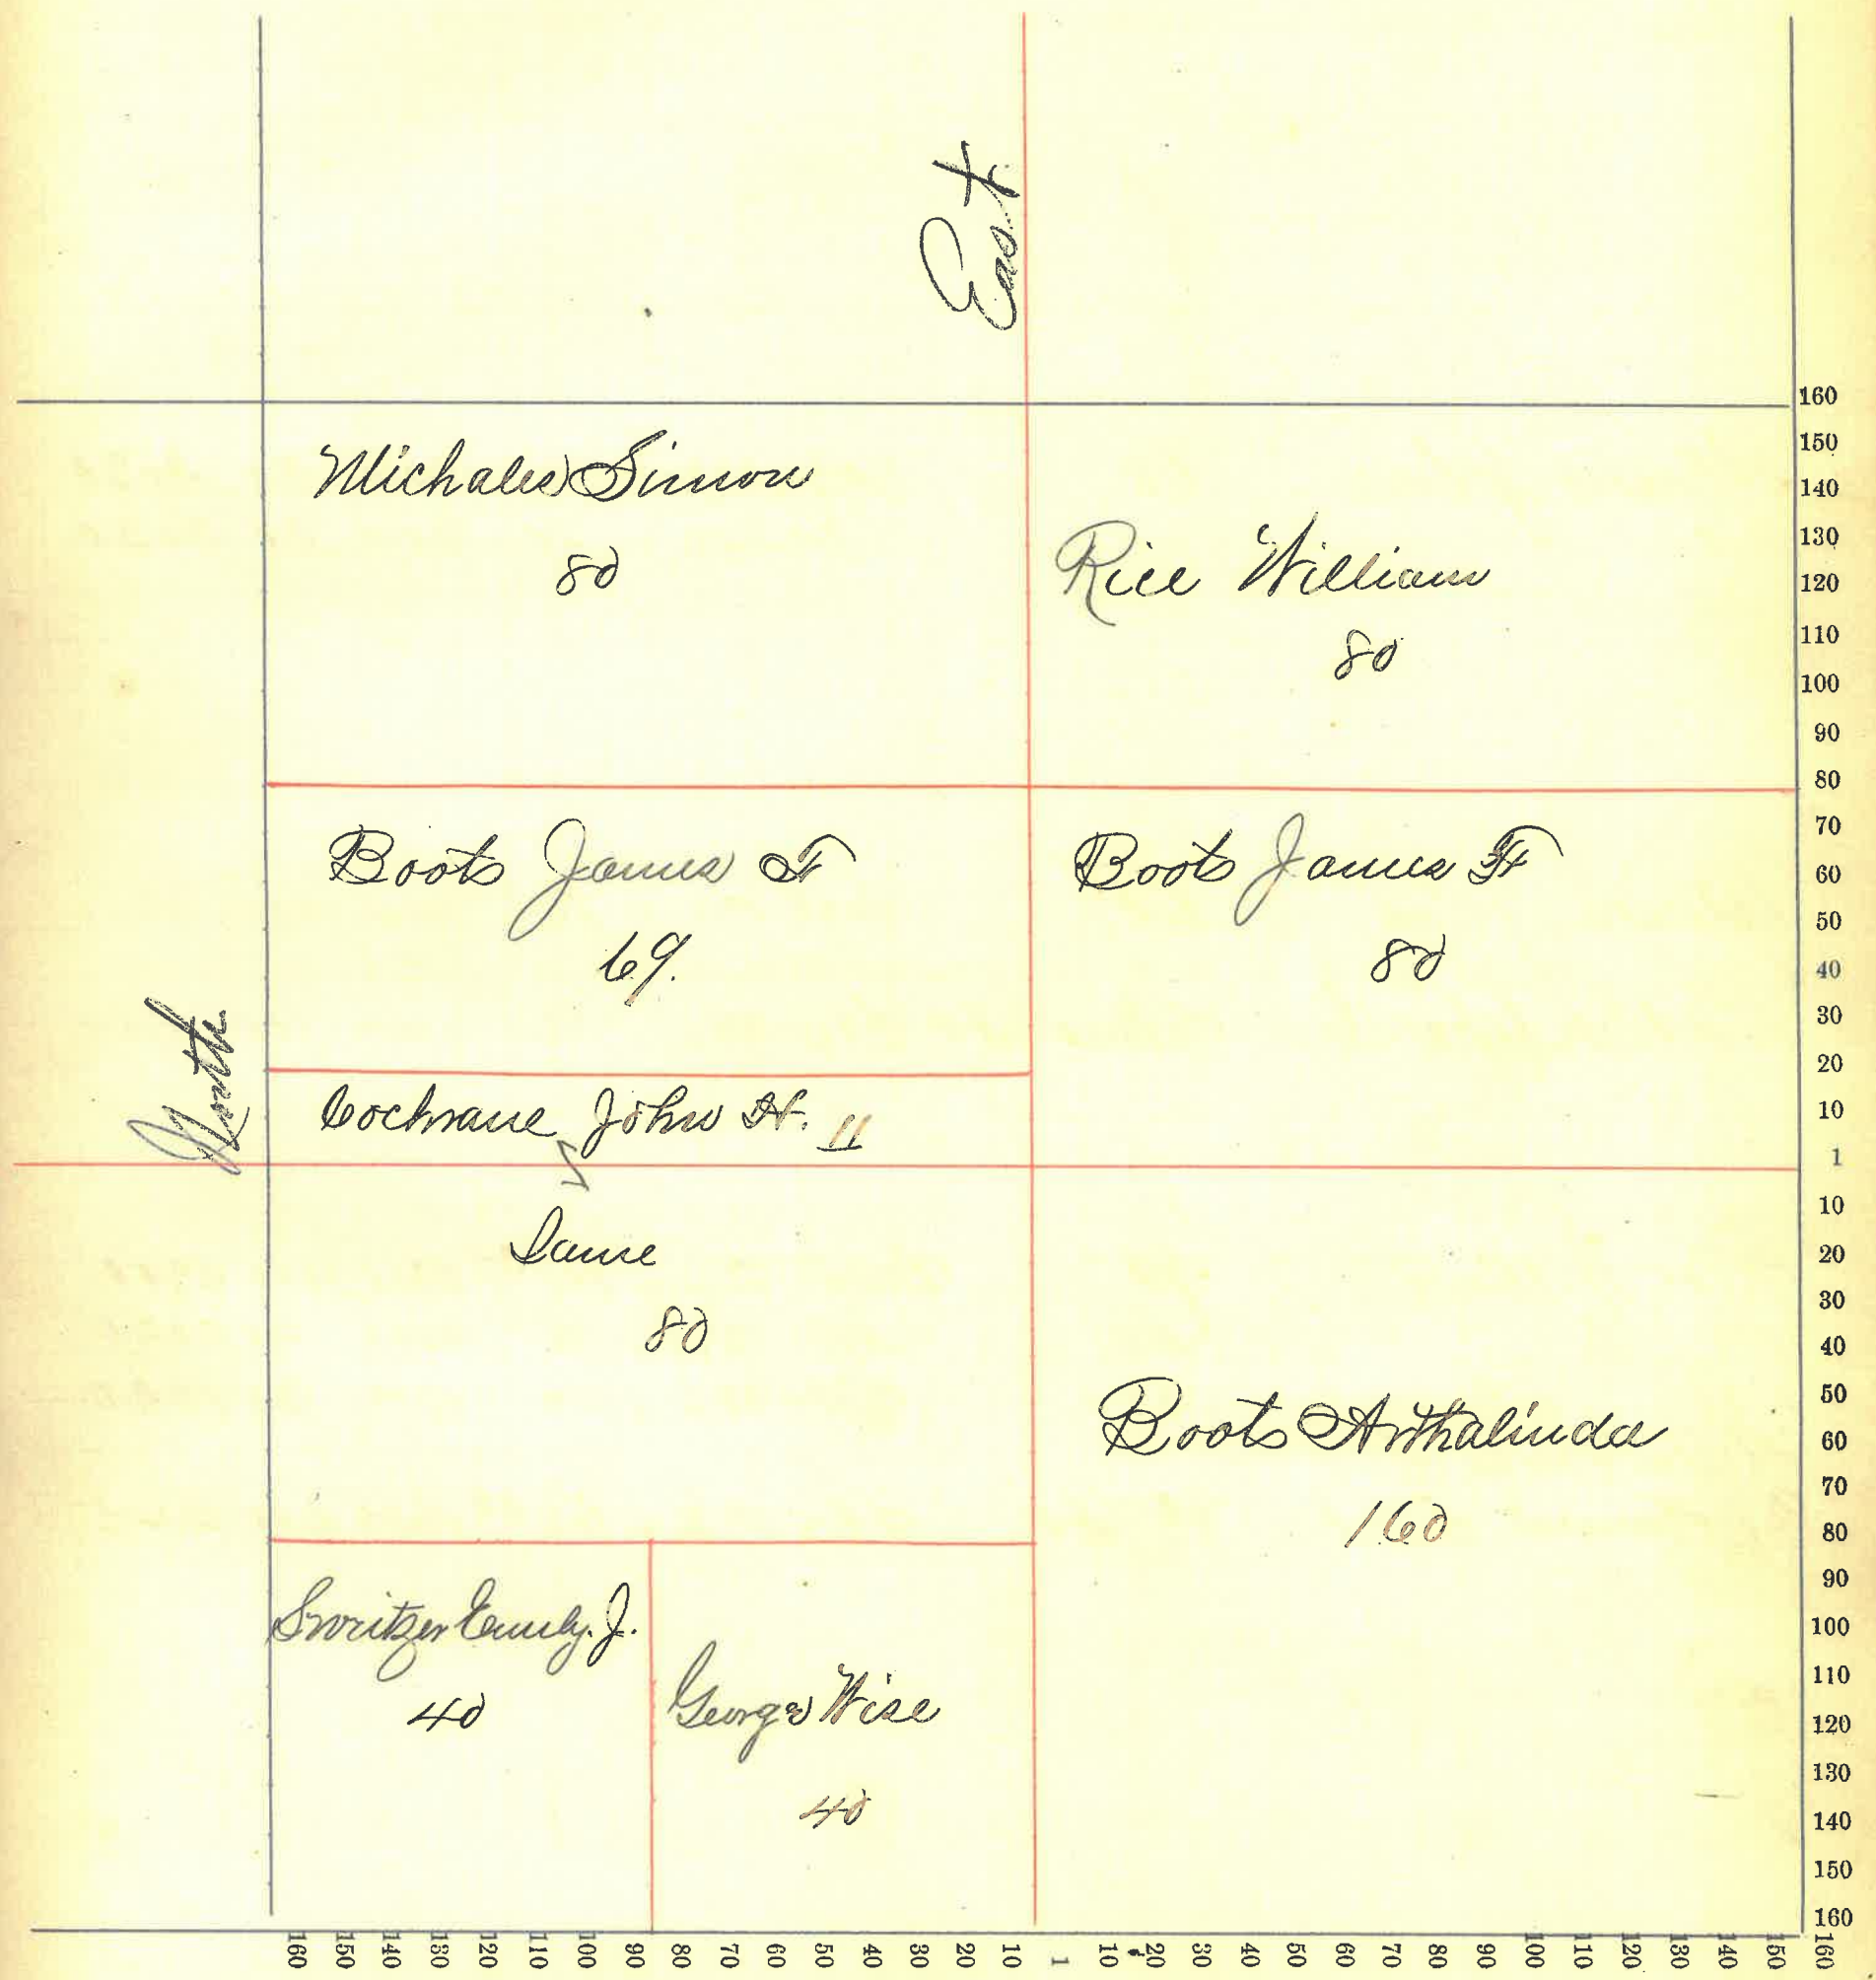 East
Michales Simon
80
Rice William
80
Boots James F
69.
Boots James F
80
North
Cochrane John H. 11
Same
80
Boots Arthalinda
160
Switzer Emily. J.
40
George Wise
40
160
150
140
130
120
110
100
90
80
70
60
50
40
30
20
10
1
10
20
30
40
50
60
70
80
90
100
110
120
130
140
150
160
160 150 140 130 120 110 100 90 80 70 60 50 40 30 20 10 1 10 20 30 40 50 60 70 80 90 100 110 120 130 140 150 160